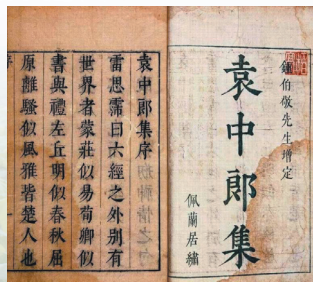 鍾伯敬先生增定
袁中郎集
佩蘭居繡
袁中郎集序
雷思霈曰六經之外別有
世界者蒙莊似易荀卿似
書與禮左丘明似春秋屈
原離騷似風雅皆楚人也